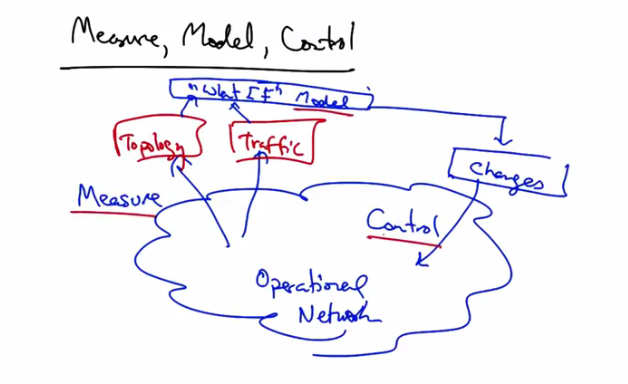 Measure, Model, Control
"What If" Model
Topology
Traffic
Changes
Measure
Control
Operational
Network